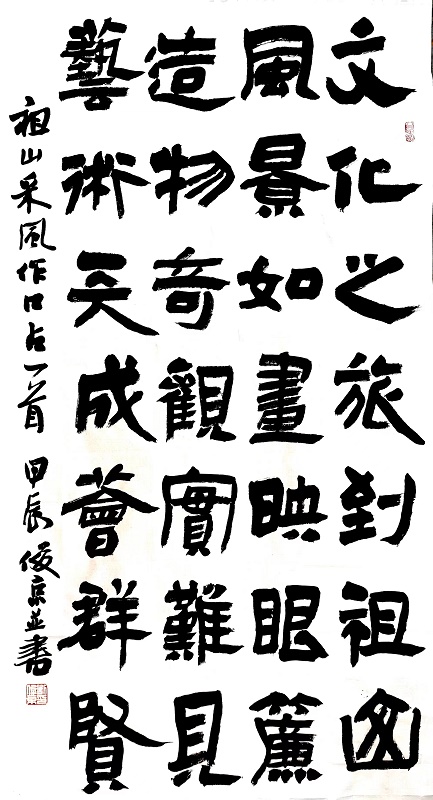 文化之旅到祖山
風景如畫映眼簾
造物奇觀實難見
藝術天成薈群賢
祖山采風作口占一首 甲辰 俊京並書